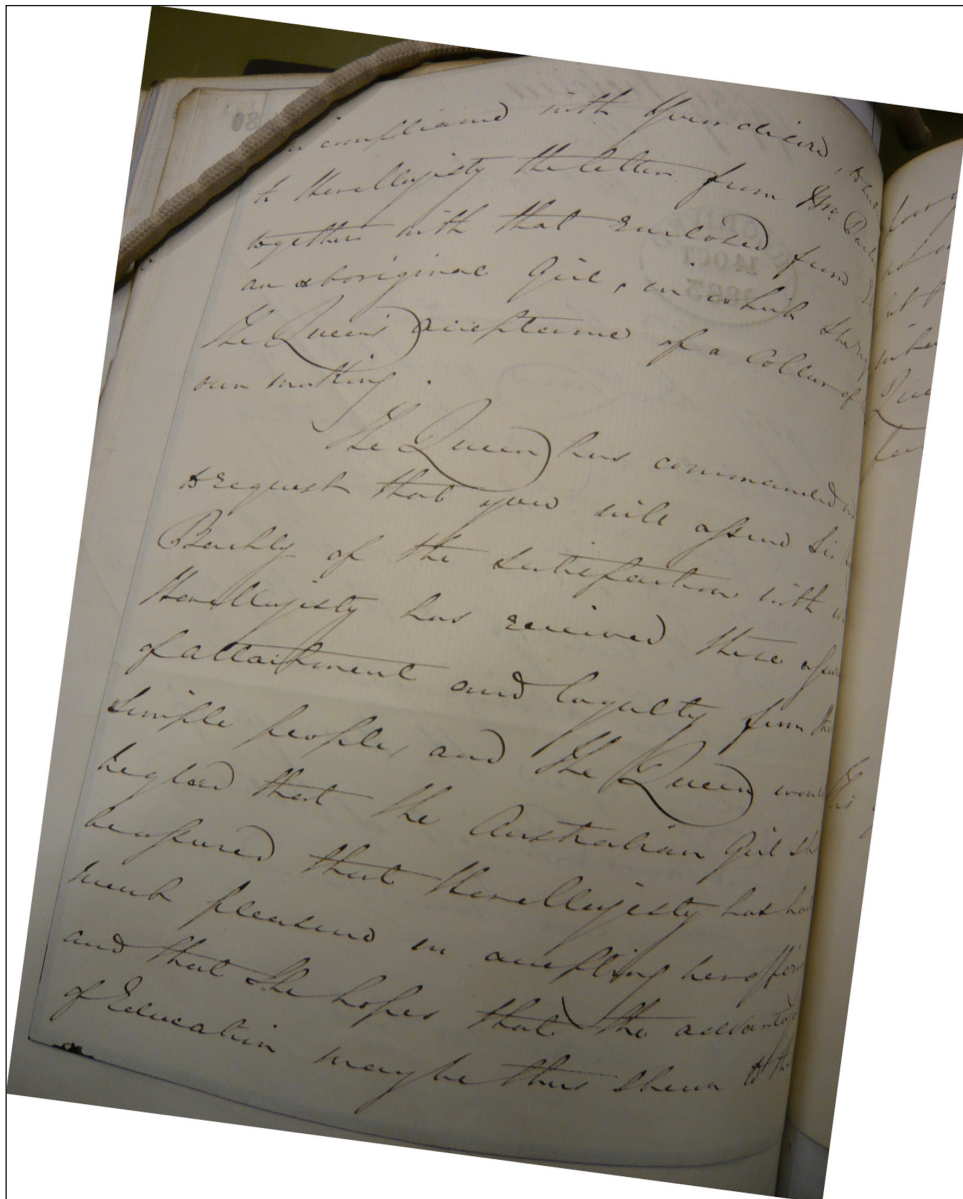 in compliance with Your desire,
to Her Majesty the letter from Mrs
together with that enclosed from
an aboriginal Girl, in which she
The Queen's acceptance of a Collar of
own making.
The Queen has commanded
to request that you will assure Sir
Barkly of the satisfaction with
Her Majesty has received these
of attachment and loyalty from
simple people, and The Queen would
be glad that the Australian Girl
be assured that Her Majesty has had
much pleasure in accepting her
and that She hopes that the
of Education may be thus shewn to
14 OCT
1863
80